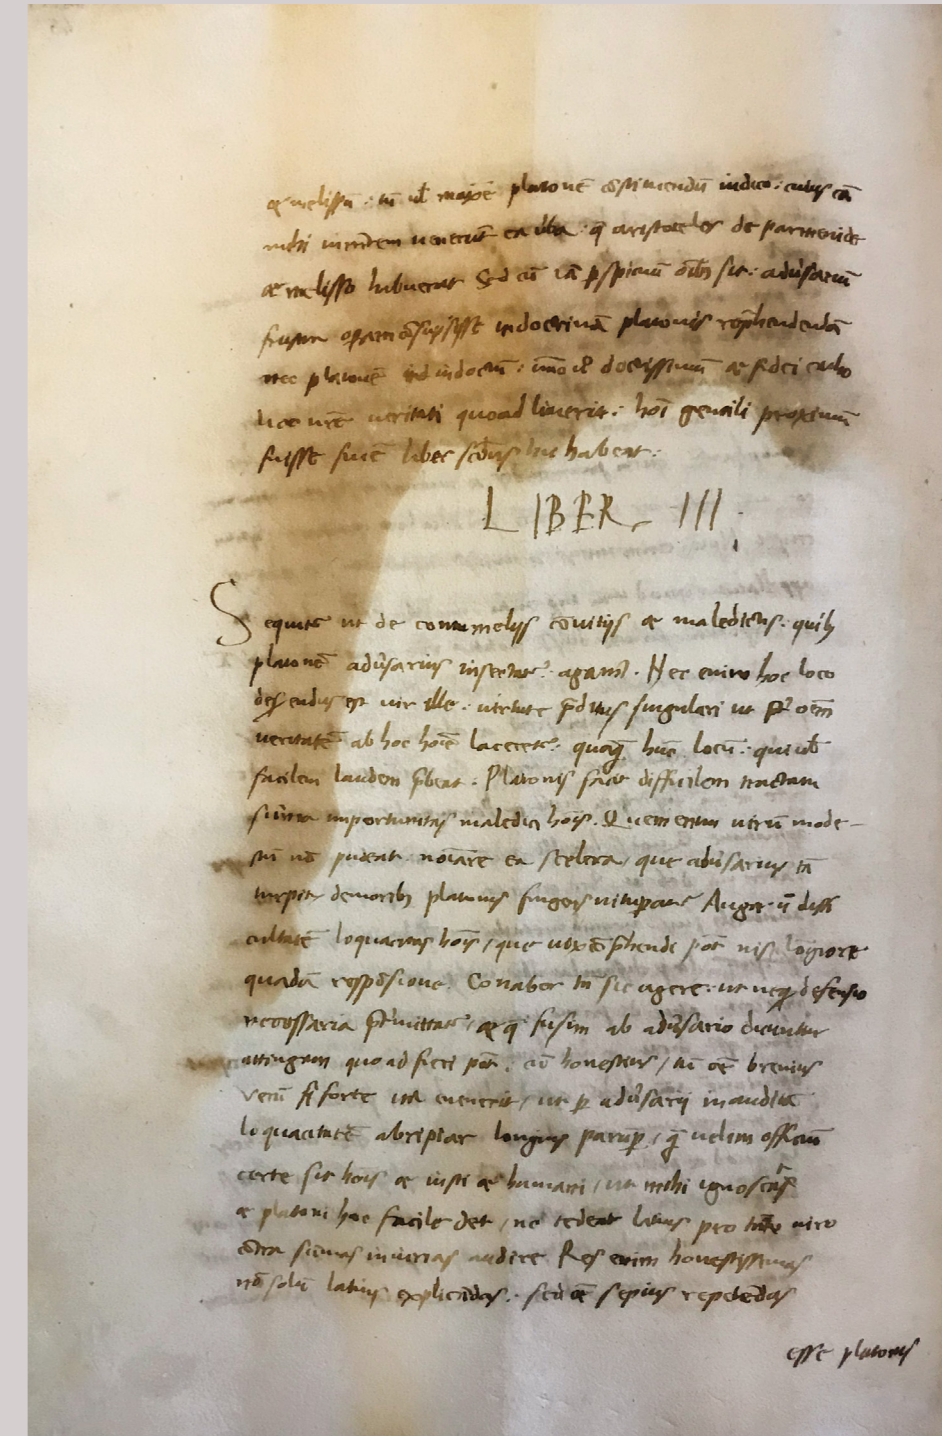 & melissū. tū ul̄ maxīe platonē existimendū iudico. cuius cā
mihi in mentem venerūt ea illa. q̄ aristoteles de parmenide
& melisso habuerat Sed cū iā ꝑspicuū oībꝫ sit. adūsariū
frustra oꝑam ꝯsūpsisse in doctrinā platonis rep̄hendendā
nec platonē indoctū. immo ul̄ doctissimum & fidei catho
lice nr̄e veritati quoad licuerit. hoī gentili proximū
fuisse finē liber scd̄us hic habeat.
LIBER III
Sequitr̄ ut de contumelijs cōvitijs & maledictis. quibꝫ
platonē adūsarius insectatr̄. agam̄. Nec enim hoc loco
deserendus est vir ille. virtute p̄ditus singulari ut p̄t oēm
veritatē ab hoc hoīe laceretr̄. quaqꝫ hūc locū. qui ul̄
facilem laudem p̄beat. Platonis facit difficilem tractatu
sūma importunitas maledici hoīs. Quem enim virū mode-
stū nō pudeat noīare ea scelera, que adūsarius tā
turpitr̄ de moribꝫ platonis fingens vituꝑat Auget ū diffi
cultatē loquacitas hoīs, que vix cōp̄hendi pōt nisi longiore
quadā respōsione. Conabor tn̄ sic agere. ut neqꝫ defensio
necessaria p̄tmittatr̄, & q̄ fusim ab adūsario dicuntur
attingam quoad fieri pōt. cū honestius, tū ēt brevius
Verū si forte ita evenerit, ut ꝑ adūsarij inauditā
loquacitatē abripiar longius parūꝑ, q̄ velim officiū
certe sit hoīs & iusti & humani, ut mihi ignoscat
& platoni hoc facile det, ne tedeat latius pro tāto viro
cōtra summas iniurias audire Res enim honestissimas
nō solū latius explicādas. sed ēt sepius repetēdas
esse platonis